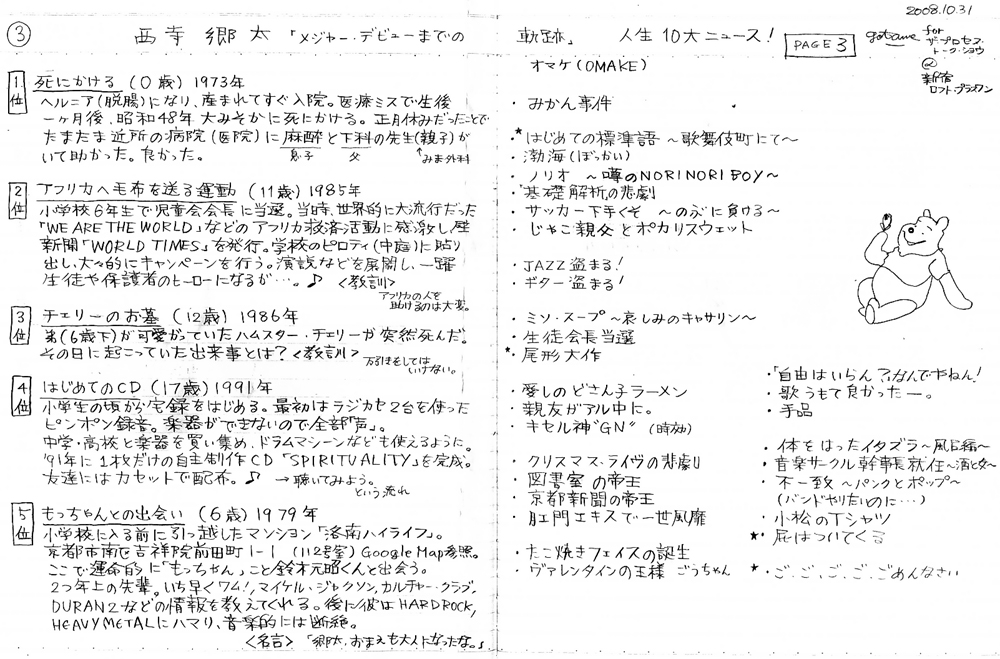 2008.10.31
③ 西寺 郷太 「メジャー・デビューまでの 軌跡」 人生10大ニュース! PAGE 3
gotame for
ザ・プロセス・
トーク・ショウ
@
新宿
ロフトプラスワン
1位 死にかける (0歳) 1973年
ヘルニア(脱腸)になり、産まれてすぐ入院。医療ミスで生後
一ヶ月後、昭和48年大みそかに死にかける。正月休みだったことで
たまたま近所の病院(医院)に麻酔と下科の先生(親子)が
息子 父 ↑みま外科
いて助かった。良かった。
2位 アフリカへ毛布を送る運動 (11歳) 1985年
小学校6年生で児童会会長に当選。当時、世界的に大流行だった
「WE ARE THE WORLD」などのアフリカ救済活動に感激し、壁
新聞「WORLD TIMES」を発行。学校のピロティ(中庭)に貼り
出し、大々的にキャンペーンを行う。演説などを展開し、一躍
生徒や保護者のヒーローになるが…。♪ <教訓>
アフリカの人を
助けるのは大変。
3位 チェリーのお墓 (12歳) 1986年
弟(6歳下)が可愛がっていたハムスター・チェリーが突然死んだ。
その日に起こっていた出来事とは? <教訓>
万引きをしては
いけない。
4位 はじめてのCD (17歳) 1991年
小学生の頃から宅録をはじめる。最初はラジカセ2台を使った
ピンポン録音。楽器ができないので全部「声」。
中学・高校と楽器を買い集め、ドラムマシーンなども使えるように。
'91年に1枚だけの自主制作CD「SPIRITUALITY」を完成。
友達にはカセットで配布。♪ →聴いてみよう。
という流れ
5位 もっちゃんとの出会い (6歳) 1979年
小学校に入る前に引っ越したマンション「洛南ハイライフ」。
京都市南区吉祥院前田町1-1 (112号室) Google Map参照。
ここで運命的に「もっちゃん」こと鈴木元昭くんと出会う。
2つ年上の先輩。いち早くワム!、マイケル・ジャクソン、カルチャー・クラブ、
DURAN2などの情報を教えてくれる。後に彼はHARD ROCK,
HEAVY METALにハマり、音楽的には断絶。
<名言> 「郷太、おまえも大人になったな。」
オマケ(OMAKE)
・みかん事件
★・はじめての標準語 〜歌舞伎町にて〜
・渤海(ぼっかい)
・ノリオ 〜噂のNORINORI BOY〜
・基礎解析の悲劇
・サッカー下手くそ 〜のぶに負ける〜
・じゃこ親父とポカリスウェット
・JAZZ盗まる!
・ギター盗まる!
・ミソ・スープ〜哀しみのキャサリン〜
・生徒会長当選
★・尾形大作
・愛しのどさん子ラーメン
・親友がアル中に。
・キセル神"GN" (時効)
・クリスマス・ライヴの悲劇U
・図書室の帝王
・京都新聞の帝王
・肛門エキスで一世風靡
・たこ焼きフェイスの誕生
・ヴァレンタインの王様 ごうちゃん
・「自由はいらん」?なんでやねん!
・歌うもて良かったー。
・手品
・体をはったイタズラ〜風呂編〜
・音楽サークル幹事長就任〜酒と女〜
・不一致 〜パンクとポップ〜
(バンドやりたいのに…)
・小松のTシャツ
★・屁はついてくる
★・ご、ご、ご、ご、ごめんなさい